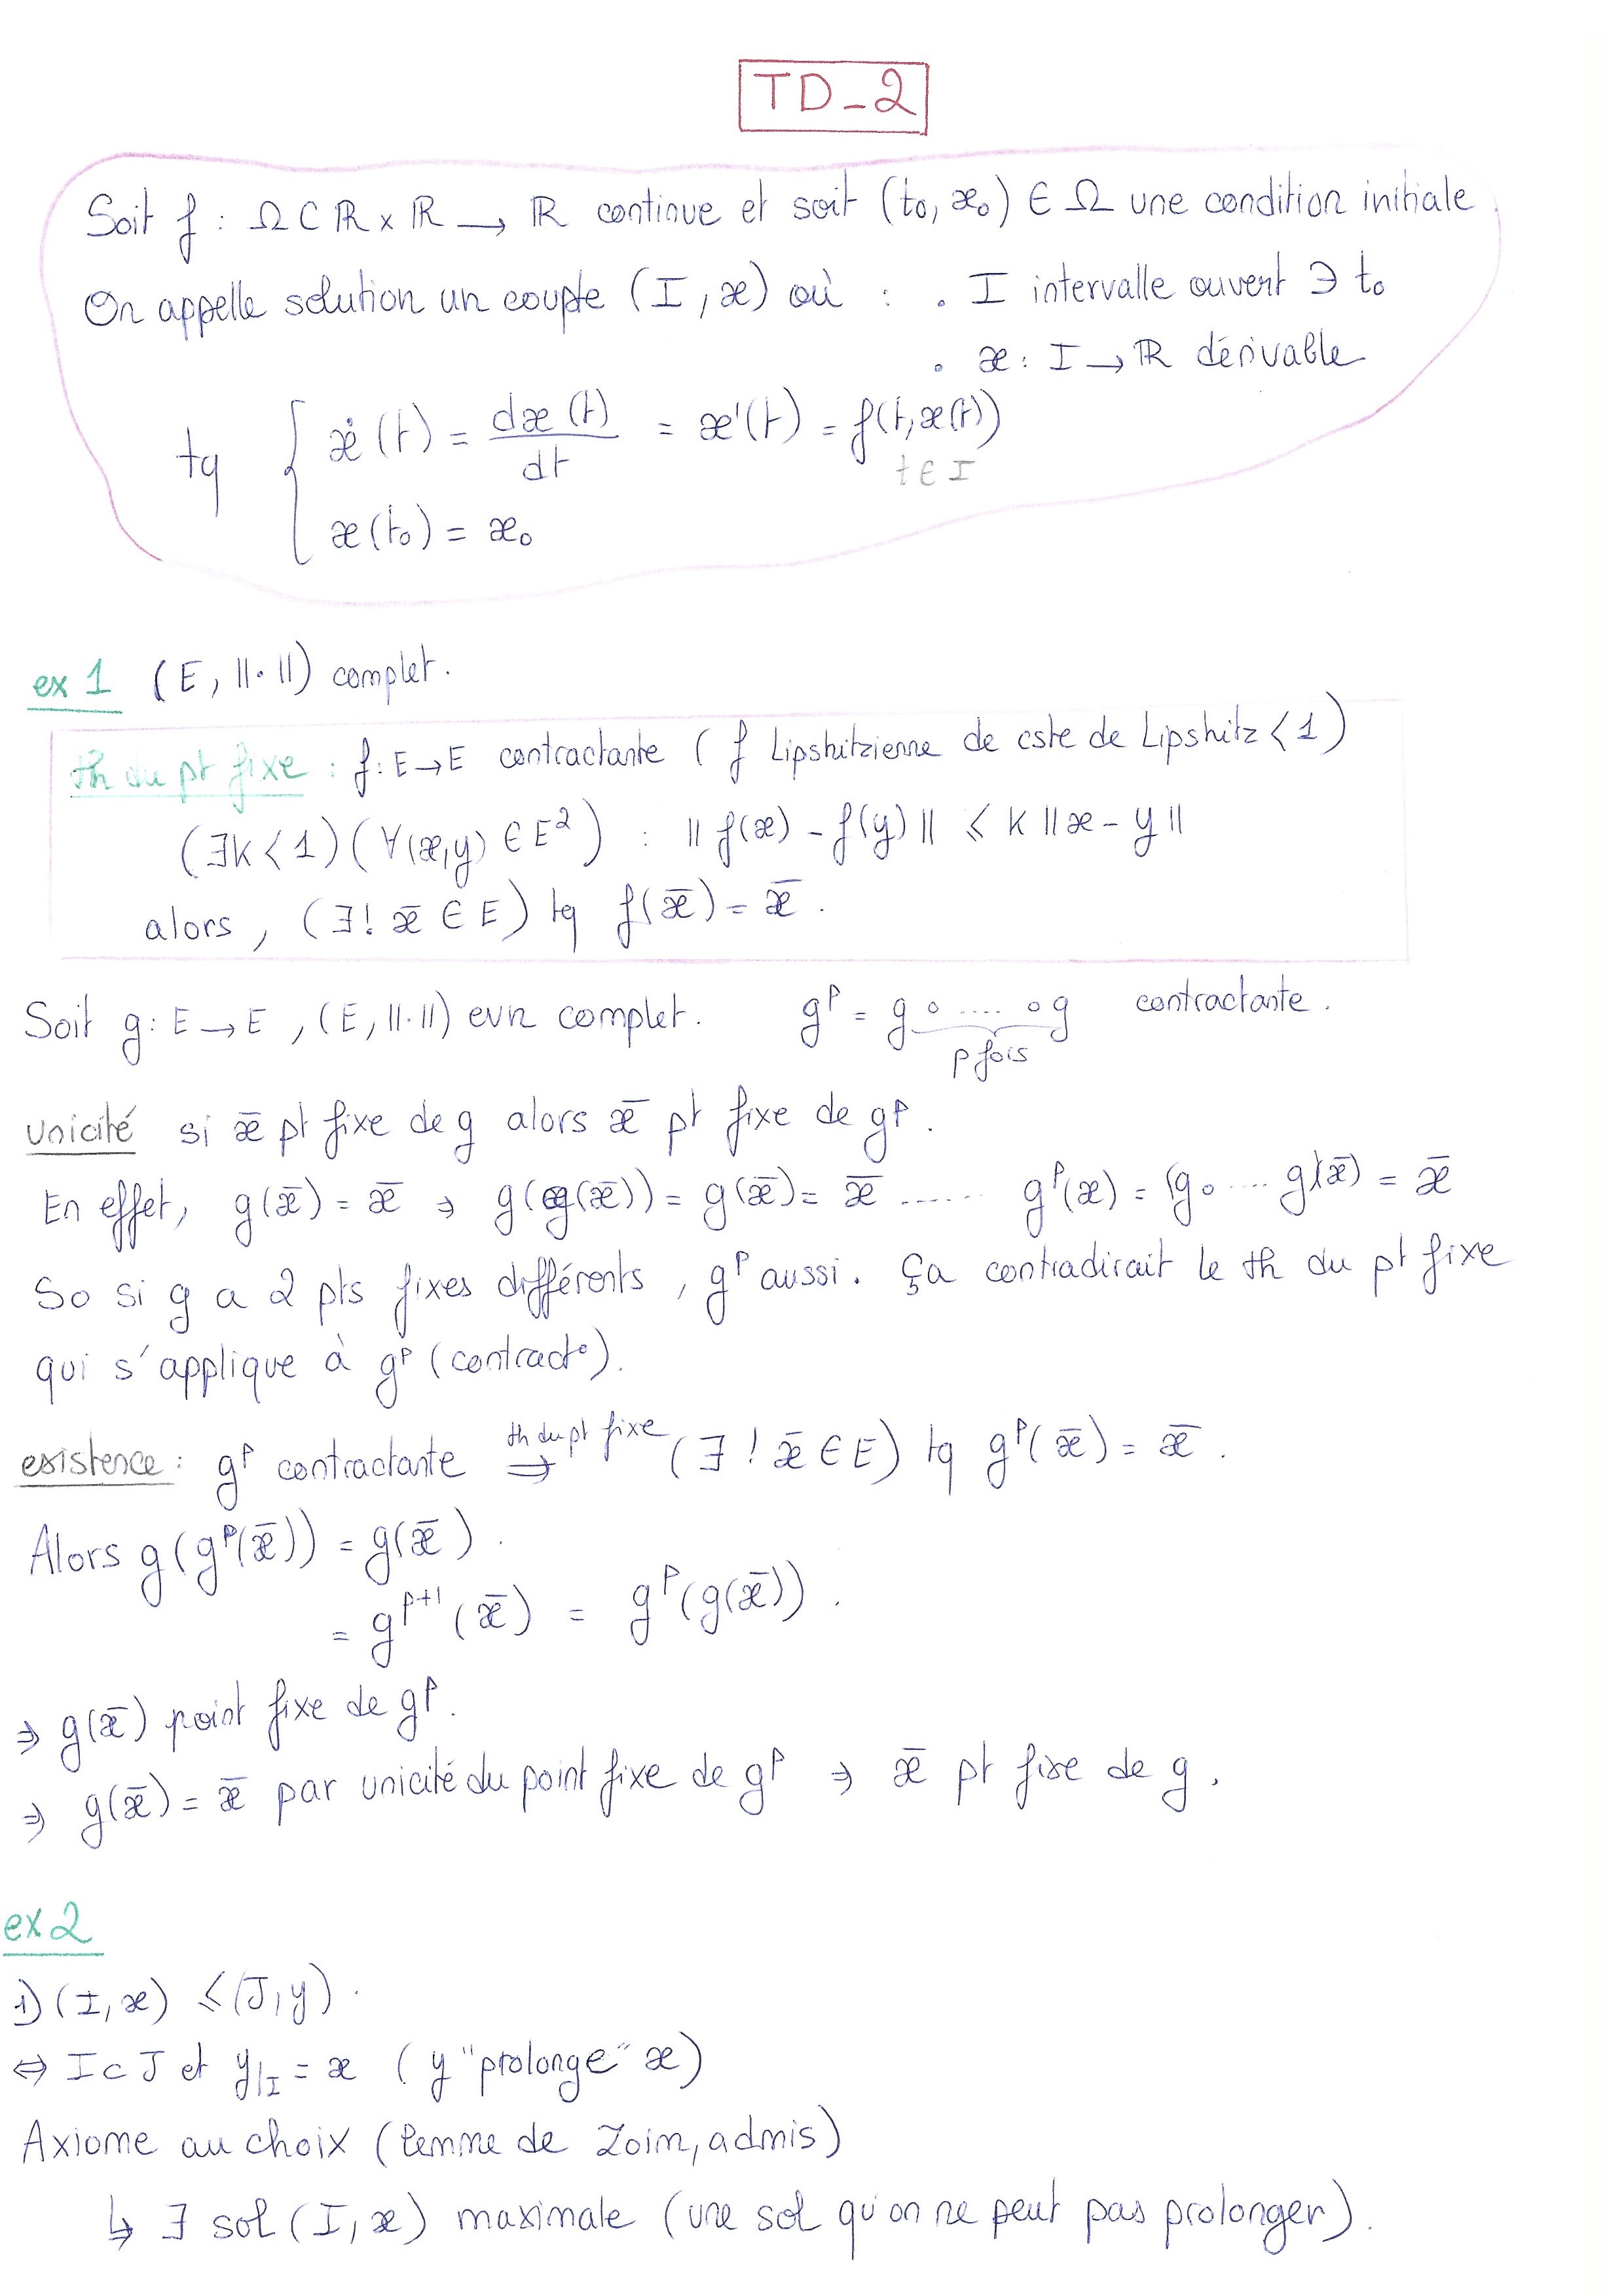 TD-2
Soit f : Ω ⊂ ℝ × ℝ → ℝ continue et soit (t₀, x₀) ∈ Ω une condition initiale
On appelle solution un couple (I, x) où : . I intervalle ouvert ∋ t₀
. x : I → ℝ dérivable
tq { ẋ(t) = dx(t)/dt = x'(t) = f(t, x(t))
t ∈ I
x(t₀) = x₀
ex 1 (E, ||·||) complet.
th du pt fixe : f : E → E contractante ( f Lipshitzienne de cste de Lipshitz < 1 )
(∃K < 1)(∀(x,y) ∈ E²) : || f(x) - f(y) || ≤ K || x - y ||
alors, (∃! x̄ ∈ E) tq f(x̄) = x̄.
Soit g : E → E, (E, ||·||) evn complet. gᵖ = g ∘ .... ∘ g contractante.
p fois
unicité si x̄ pt fixe de g alors x̄ pt fixe de gᵖ.
En effet, g(x̄) = x̄ ⇒ g(g(x̄)) = g(x̄) = x̄ ...... gᵖ(x) = (g∘ .... g)(x̄) = x̄
So si g a 2 pts fixes différents, gᵖ aussi. Ça contradirait le th du pt fixe
qui s'applique à gᵖ (contract°).
existence : gᵖ contractante ⇒ (th du pt fixe) (∃! x̄ ∈ E) tq gᵖ(x̄) = x̄.
Alors g(gᵖ(x̄)) = g(x̄).
= gᵖ⁺¹(x̄) = gᵖ(g(x̄)).
⇒ g(x̄) point fixe de gᵖ.
⇒ g(x̄) = x̄ par unicité du point fixe de gᵖ ⇒ x̄ pt fixe de g.
ex 2
1) (I, x) ≤ (J, y).
⇔ I ⊂ J et y|I = x ( y "prolonge" x)
Axiome au choix (lemme de Zoim, admis)
↳ ∃ sol (I, x) maximale (une sol qu'on ne peut pas prolonger).